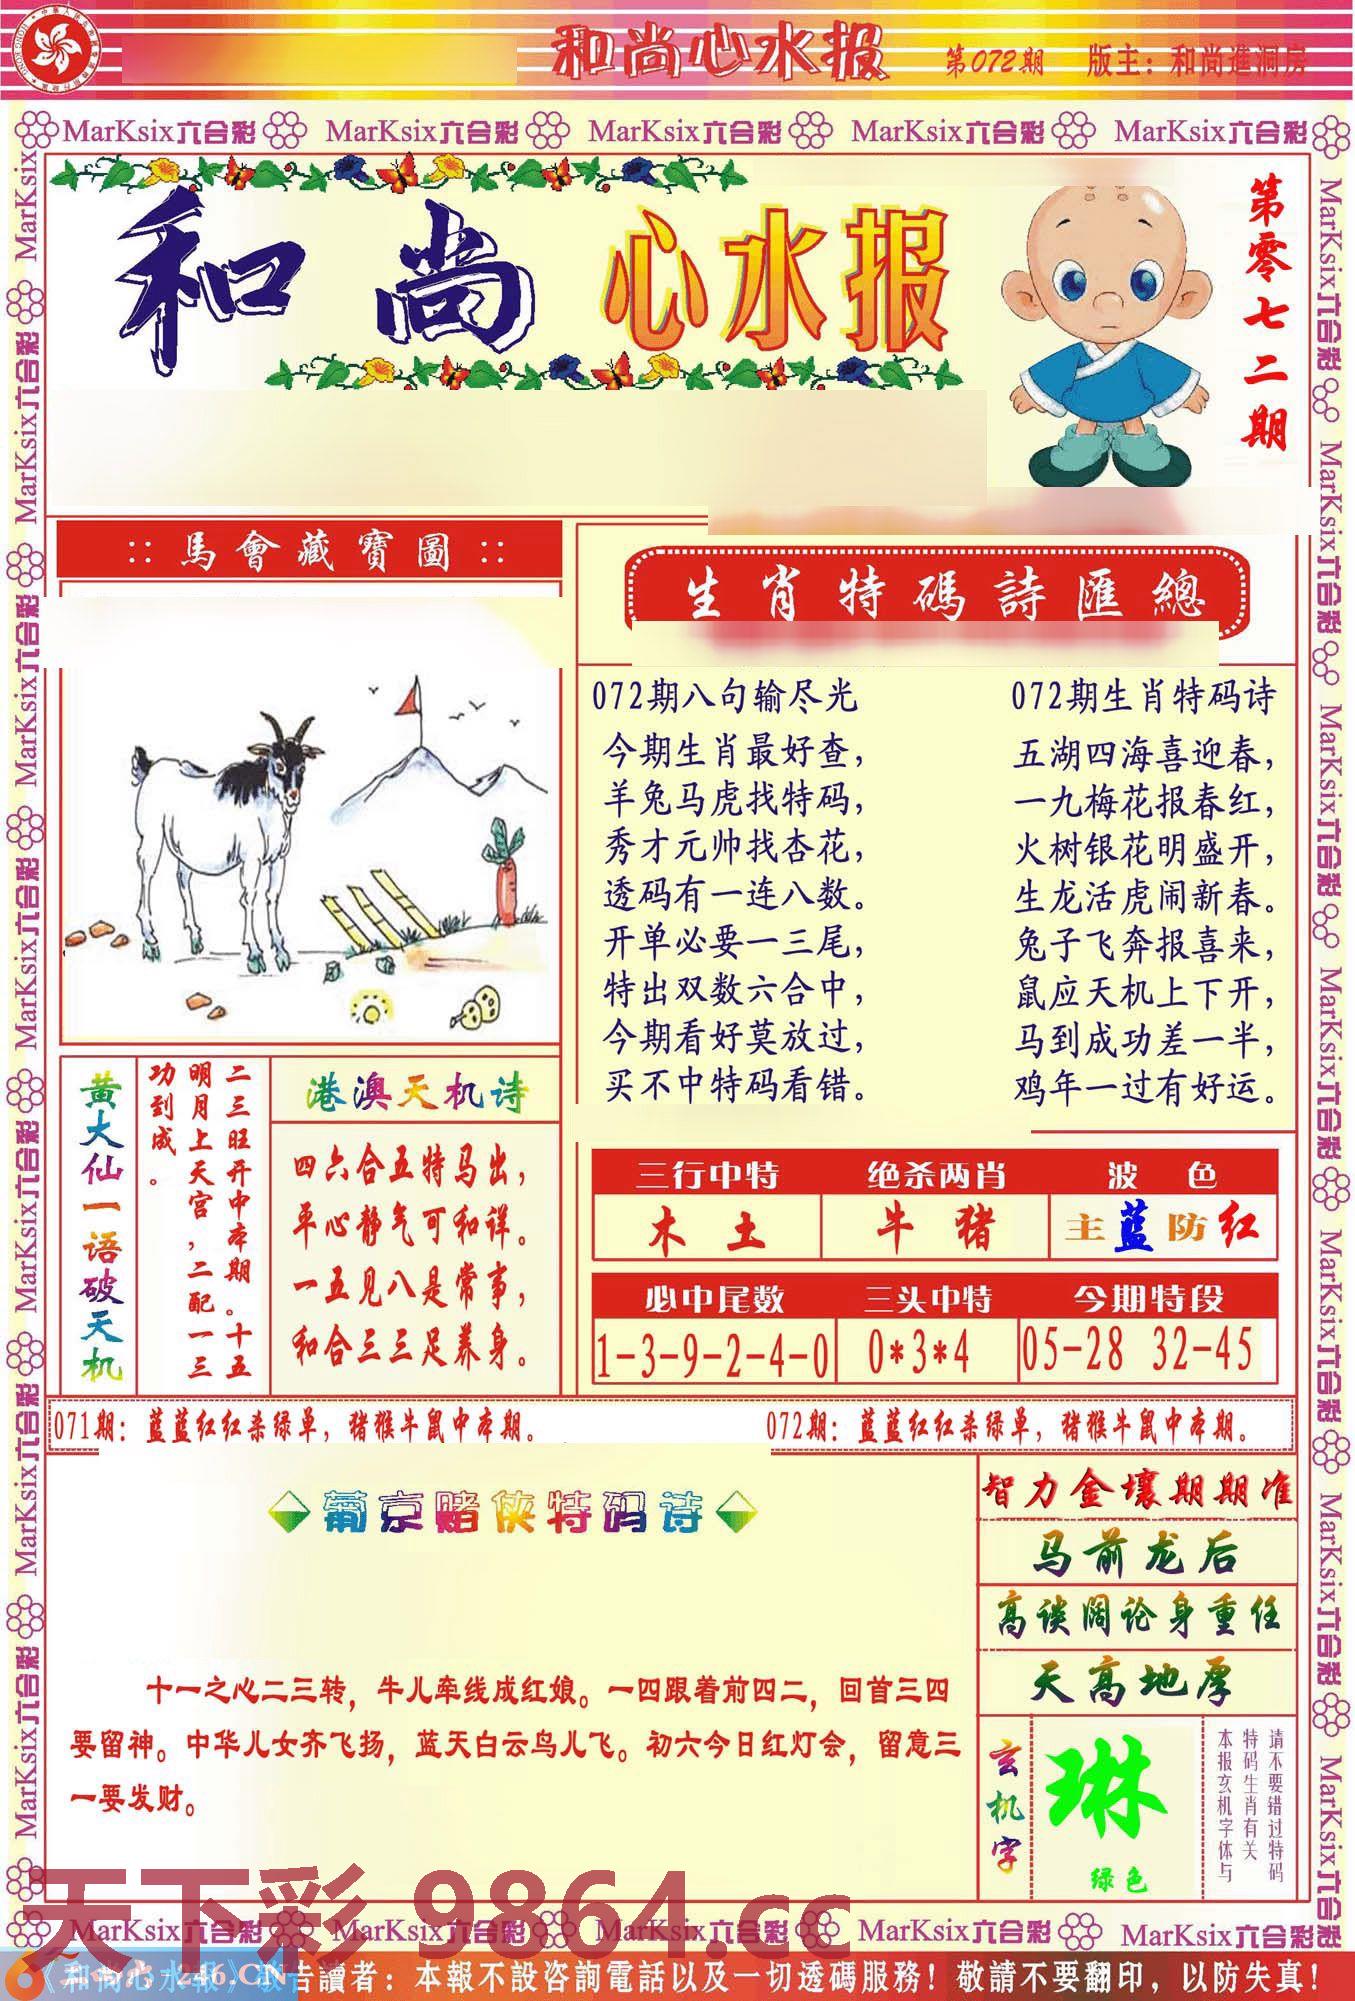 和尚心水报 第072期 版主：和尚進洞房
MarKsix六合彩 MarKsix六合彩 MarKsix六合彩 MarKsix六合彩 MarKsix六合彩
和尚心水报
第零七二期
::馬會藏寶圖::
生肖特碼詩匯總
072期八句输尽光
今期生肖最好查，
羊兔马虎找特码，
秀才元帅找杏花，
透码有一连八数。
开单必要一三尾，
特出双数六合中，
今期看好莫放过，
买不中特码看错。
072期生肖特码诗
五湖四海喜迎春，
一九梅花报春红，
火树银花明盛开，
生龙活虎闹新春。
兔子飞奔报喜来，
鼠应天机上下开，
马到成功差一半，
鸡年一过有好运。
黄大仙一语破天机
二三旺开中本期。十五
明月上天宫，二配一三
功到成。
港澳天机诗
四六合五特马出，
平心静气可和详。
一五见八是常事，
和合三三足养身。
三行中特 绝杀两肖 波色
木土 牛猪 主蓝防红
必中尾数 三头中特 今期特段
1-3-9-2-4-0 0*3*4 05-28 32-45
071期：蓝蓝红红杀绿单，猪猴牛鼠中本期。
072期：蓝蓝红红杀绿单，猪猴牛鼠中本期。
葡京赌侠特码诗
十一之心二三转，牛儿牵线成红娘。一四跟着前四二，回首三四
要留神。中华儿女齐飞扬，蓝天白云鸟儿飞。初六今日红灯会，留意三
一要发财。
智力金壤期期准
马前龙后
高谈阔论身重任
天高地厚
玄机字
琳
绿色
请不要错过特码
特码生肖有关
本报玄机字体与
天下彩 9864.cc
MarKsix六合彩 MarKsix六合彩 MarKsix六合彩 MarKsix六合彩 MarKsix六合彩
246.CN
《和尚心水報》敬告讀者：本報不設咨詢電話以及一切透碼服務！敬請不要翻印，以防失真！